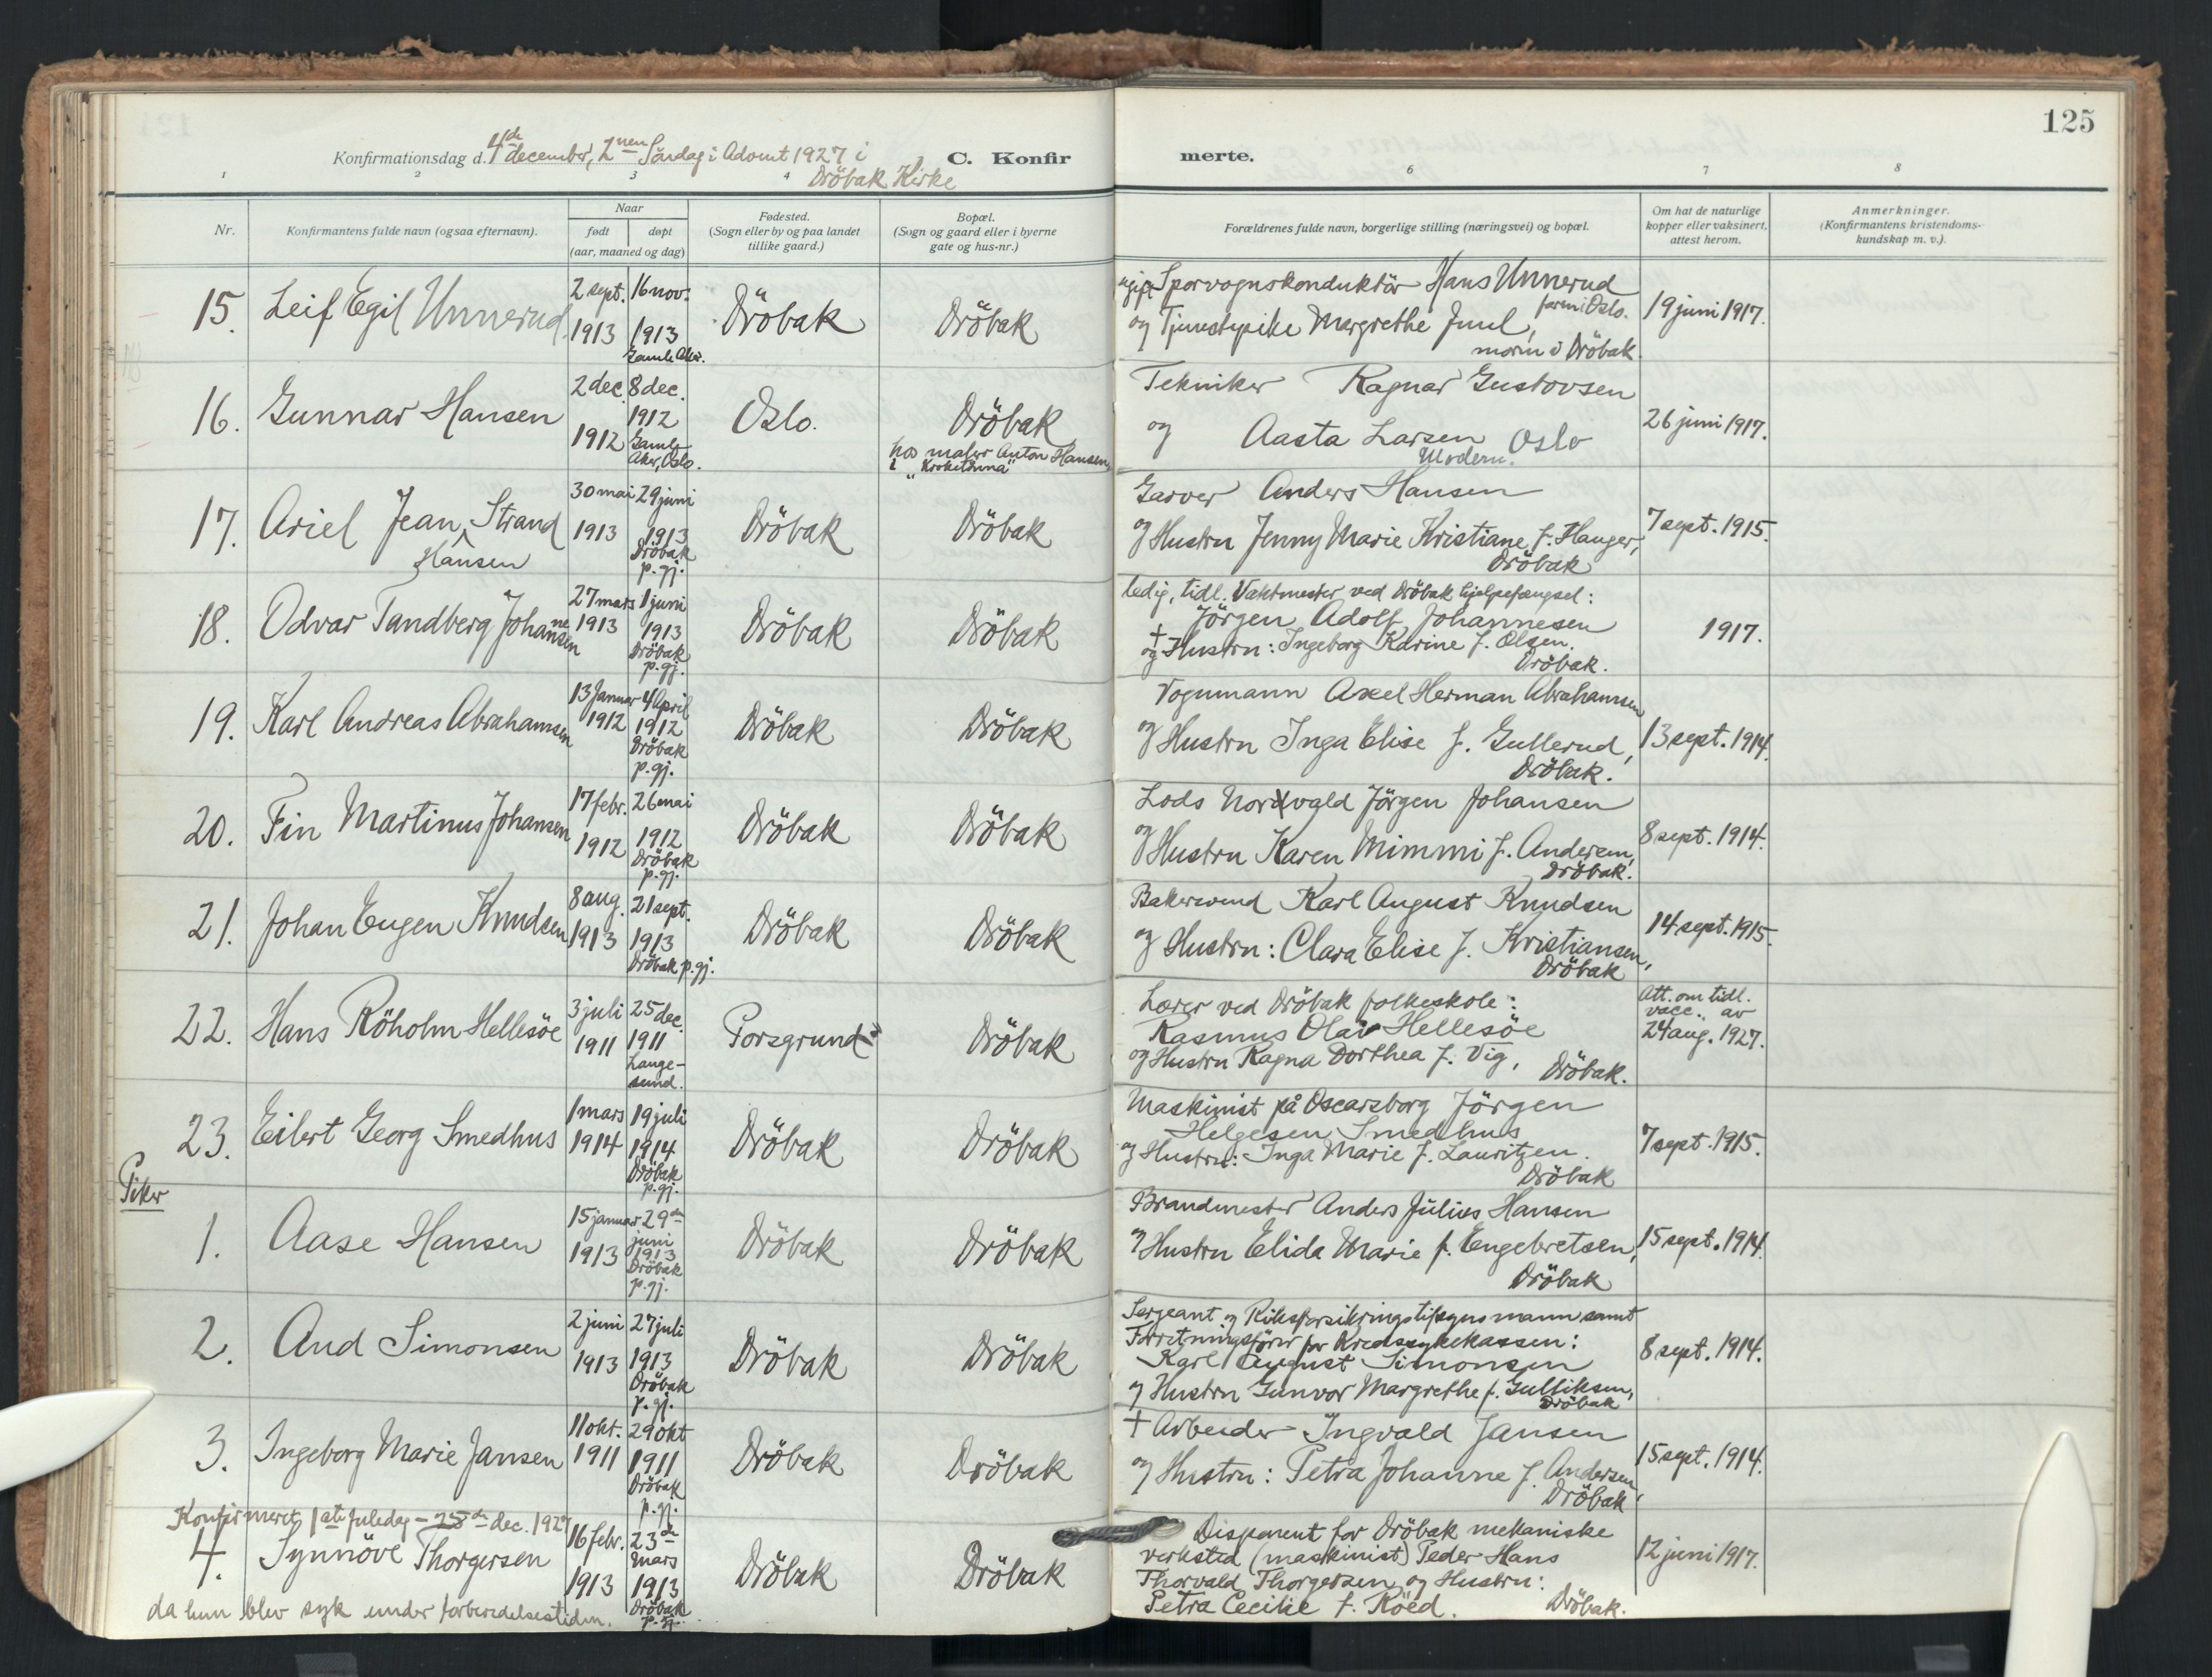 125
Konfirmationsdag d. 4de december, 2nen Söndag i Advent 1927 i
Dröbak Kirke
C. Konfir
merte.
1 2 3 4 6 7 8
Nr.
Konfirmantens fulde navn (ogsaa efternavn).
Naar
født døpt
(aar, maaned og dag)
Fødested.
(Sogn eller by og paa landet
tillike gaard.)
Bopæl.
(Sogn og gaard eller i byerne
gate og hus-nr.)
Forældrenes fulde navn, borgerlige stilling (næringsvei) og bopæl.
Om hat de naturlige
kopper eller vaksinert,
attest herom.
Anmerkninger.
(Konfirmantens kristendoms-
kundskap m. v.).
15. Leif Egil Unnerud
2 sept. 1913
16 nov. 1913
Gamle Aker.
Dröbak
Dröbak
ugift Sporvognskonduktör Hans Unnerud
faren i Oslo.
og Tjenestepike Margrethe Juul,
moren i Dröbak
19 juni 1917.
16. Gunnar Hansen
2 dec. 1912
8 dec. 1912
Gamle
Aker, Oslo.
Oslo.
Dröbak
hos maler Anton Hansen
i "Kroketönna"
Tekniker Ragnar Gustovsen
og Aasta Larsen Oslo
Modern.
26 juni 1917.
17. Ariel Jean Strand
Hansen
30 mai 1913
29 juni 1913
Dröbak
p. gj.
Dröbak
Dröbak
Garver Anders Hansen
og Hustru Jenny Marie Kristiane f. Hauger,
Dröbak
7 sept. 1915.
18. Odvar Tandberg Johannesen
27 mars 1913
1 juni 1913
Dröbak
p. gj.
Dröbak
Dröbak
ledig, tidl. Vaktmester ved Dröbak hjelpefængsel:
Jörgen Adolf Johannesen
† og Hustru: Ingeborg Karine f. Olsen.
Dröbak.
1917.
19. Karl Andreas Abrahamsen
13 Januar 1912
4 April 1912
Dröbak
p. gj.
Dröbak
Dröbak
Vognmann Axel Herman Abrahamsen
og Hustru Inga Elise f. Gullerud,
Dröbak.
13 sept. 1914.
20. Fin Martinus Johansen
17 febr. 1912
26 mai 1912
Dröbak
p. gj.
Dröbak
Dröbak
Lods Nordvald Jörgen Johansen
og Hustru Karen Mimmi f. Andersen,
Dröbak.
8 sept. 1914.
21. Johan Eugen Knudsen
8 aug. 1913
21 sept. 1913
Dröbak p. gj.
Dröbak
Dröbak
Bakersvend Karl August Knudsen
og Hustru: Clara Elise f. Kristiansen,
Dröbak
14 sept. 1915.
22. Hans Röholm Hellesöe
3 juli 1911
25 dec. 1911
Lange-
sund.
Porsgrund
Dröbak
Lærer ved Dröbak folkeskole:
Rasmus Olav Hellesöe
og Hustru Ragna Dorthea f. Vig,
Dröbak.
Att. om tidl.
vacc. av
24 aug. 1927.
23. Eilert Georg Smedhus
1 mars 1914
19 juli 1914
Dröbak
p. gj.
Dröbak
Dröbak
Maskinist på Oscarsborg Jörgen
Helgesen Smedhus
og Hustru: Inga Marie f. Lauritzen.
Dröbak
7 sept. 1915.
Piker
1. Aase Hansen
15 januar 1913
29de
juni
1913
Dröbak
p. gj.
Dröbak
Dröbak
Brandmester Anders Julius Hansen
og Hustru Elida Marie f. Engebretsen,
Dröbak
15 sept. 1914.
2. Aud Simonsen
2 juni 1913
27 juli 1913
Dröbak
p. gj.
Dröbak
Dröbak
Sergeant og Riksforsikringstilsynsmann samt
Forretningsförer for Kredssykekassen:
Karl August Simonsen
og Hustru Gunvor Margrethe f. Gulliksen,
Dröbak
8 sept. 1914.
3. Ingeborg Marie Jansen
11 okt. 1911
29 okt 1911
Dröbak
p. gj.
Dröbak
Dröbak
† Arbeider Ingvald Jansen
og Hustru: Petra Johanne f. Andersen,
Dröbak
15 sept. 1914.
Konfirmeret 1ste juledag – 25de dec. 1927
4. Synnöve Thorgersen
16 febr. 1913
23de
mars
1913
Dröbak
p. gj.
Dröbak
Dröbak
Disponent for Dröbak mekaniske
verksted (maskinist) Peder Hans
Thorvald Thorgersen og Hustru:
Petra Cecilie f. Röed. Dröbak.
12 juni 1917.
da hun blev syk under forberedelsestiden.